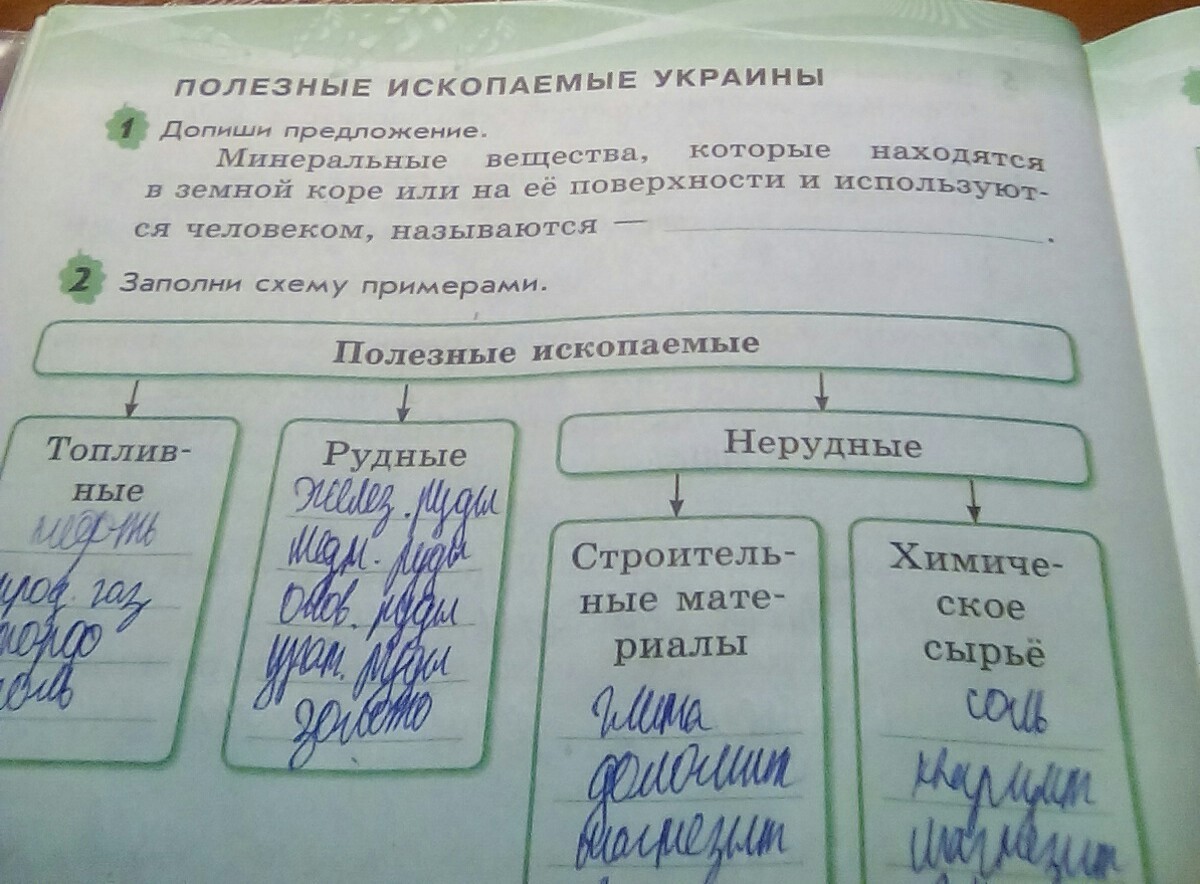 ПОЛЕЗНЫЕ ИСКОПАЕМЫЕ УКРАИНЫ
1 Допиши предложение.
Минеральные вещества, которые находятся
в земной коре или на её поверхности и используют-
ся человеком, называются — .
2 Заполни схему примерами.
Полезные ископаемые
Топлив-
ные
нефть
прод. газ
Рудные
желез. руды
медн. руды
олов. руды
уран. руды
золото
Нерудные
Строитель-
ные мате-
риалы
глина
доломит
магнезит
Химиче-
ское
сырьё
соль
кварцит
магнезит